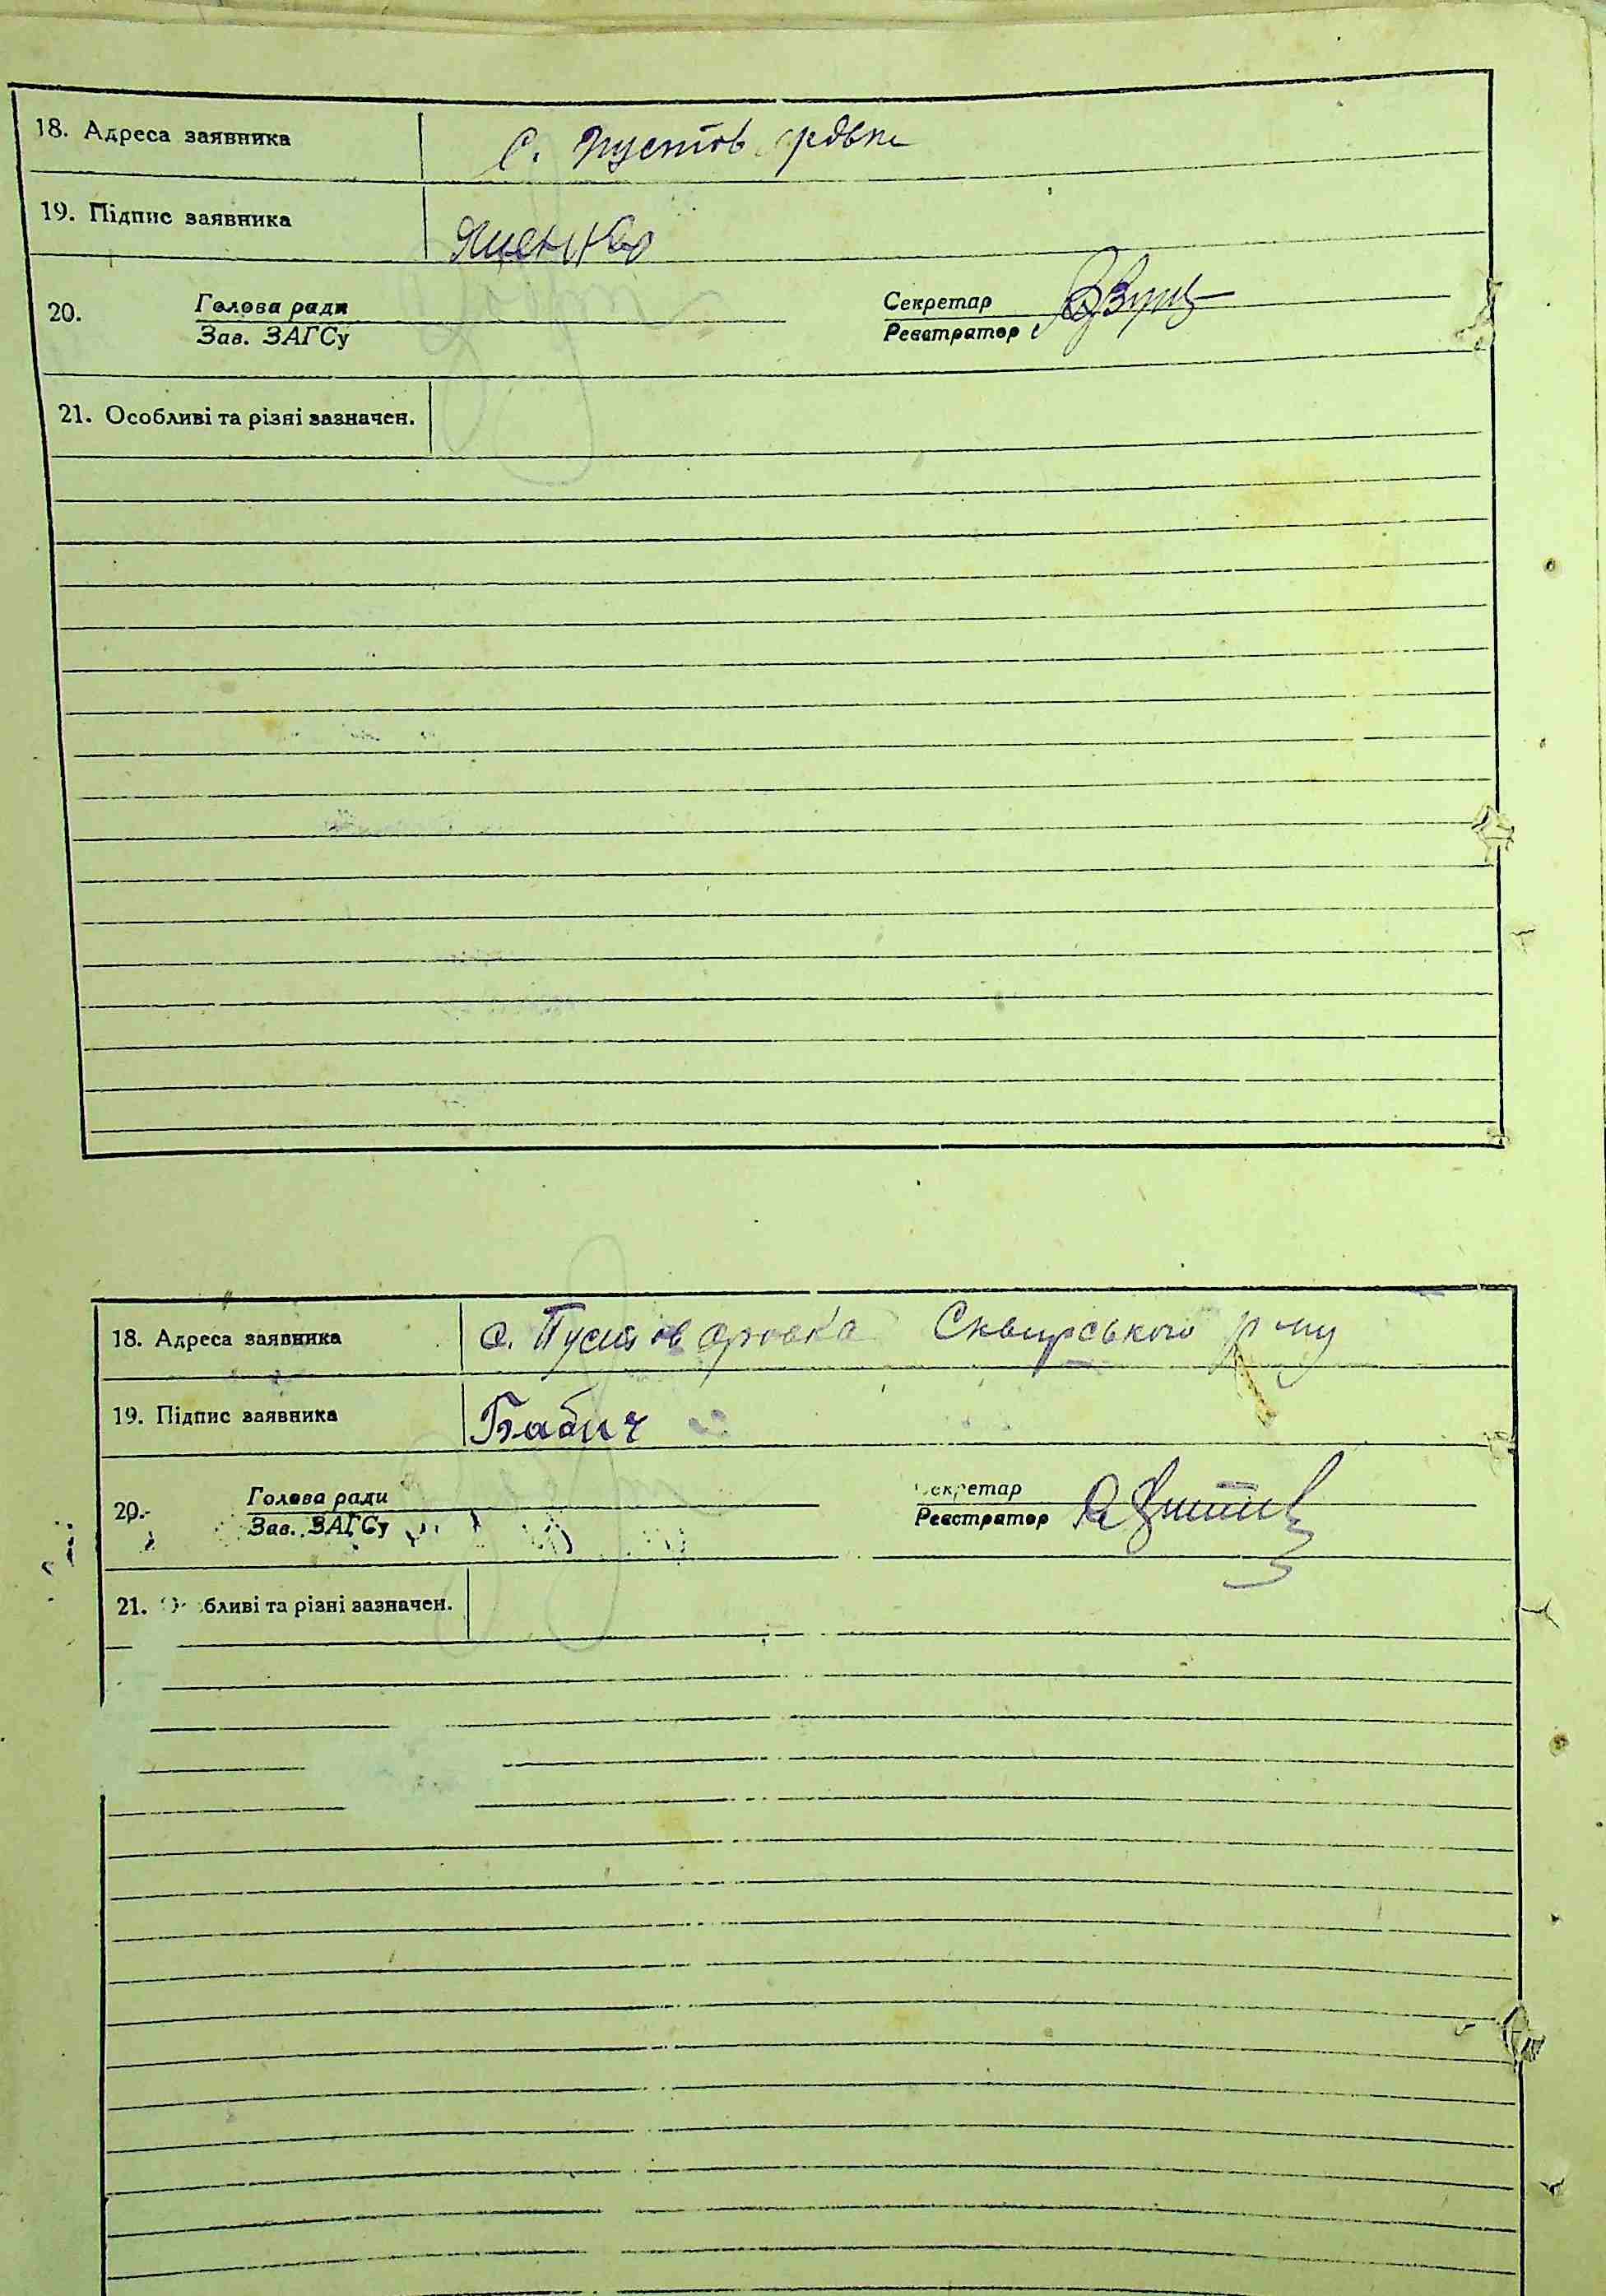 18. Адреса заявника с. Пустов
19. Підпис заявника
Голова ради Секретар
20.
Зав. ЗАГСу Реєстратор
21. Особливі та різні зазначен.
18. Адреса заявника с. Пустоваровка Сквирського р-ну
19. Підпис заявника Бабич
Голова ради екретар
20.
Зав. ЗАГСу Реєстратор
21. бливі та різні зазначен.